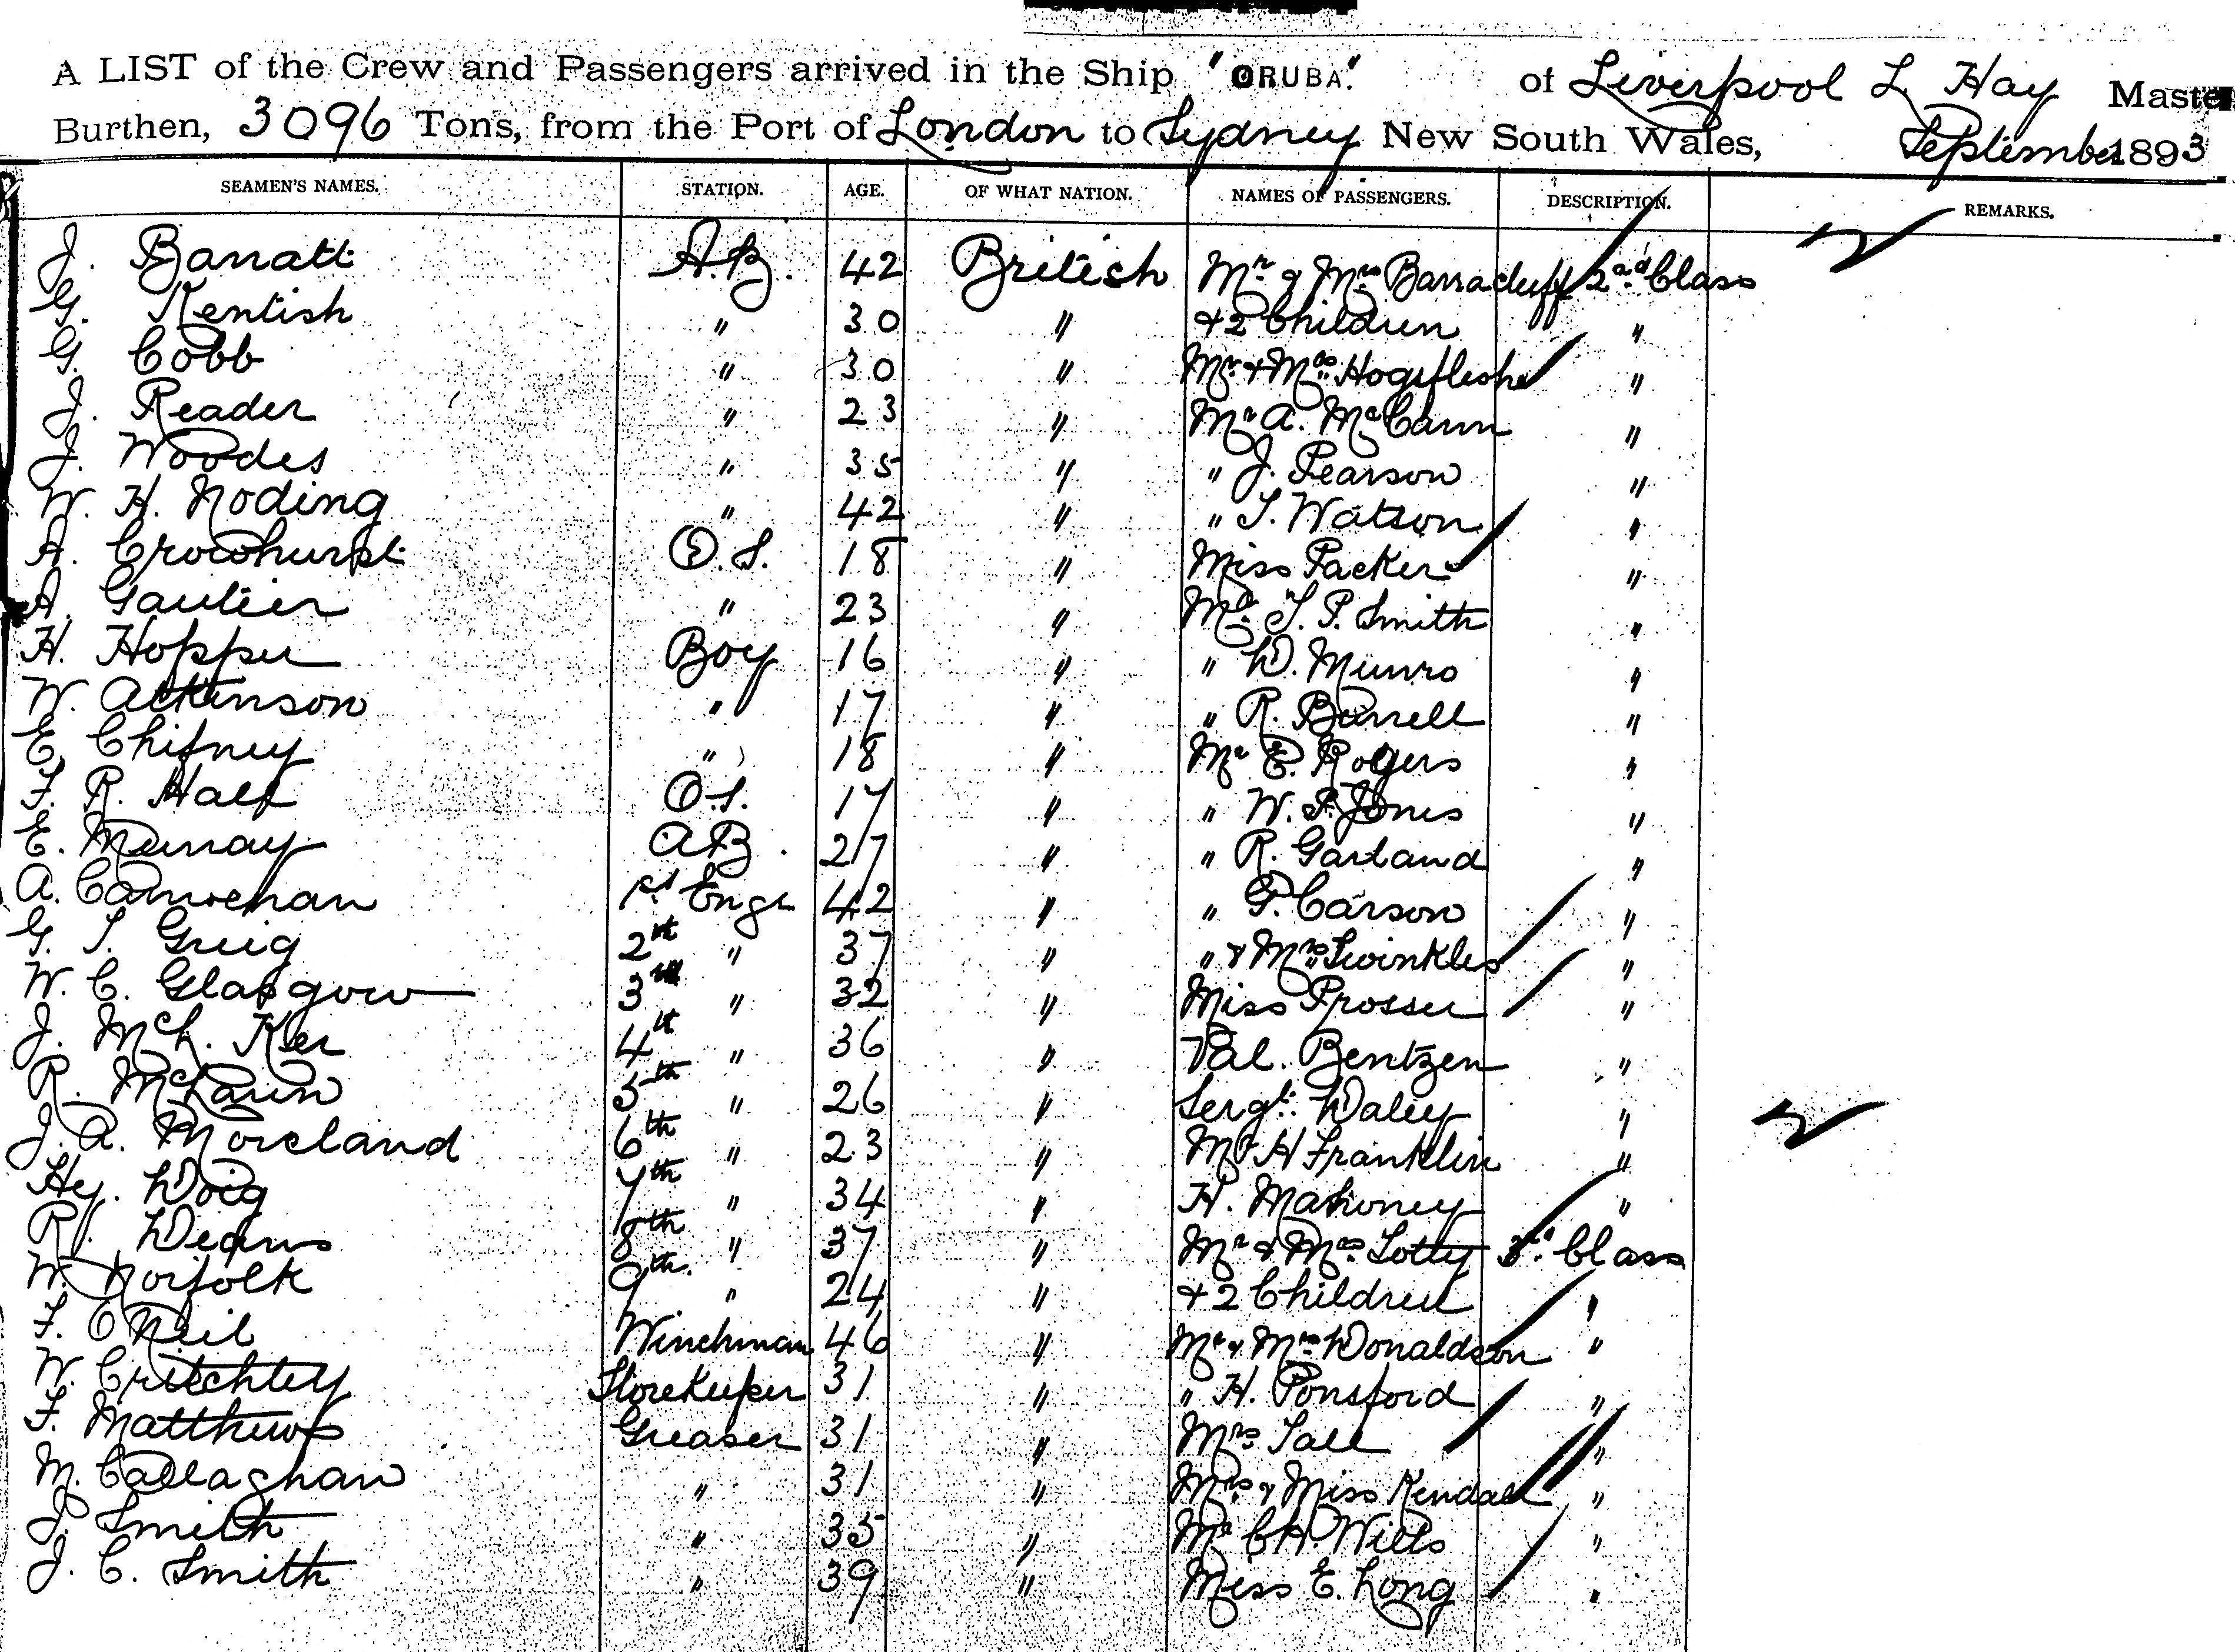 A LIST of the Crew and Passengers arrived in the Ship "ORUBA". of Liverpool L. Hay Master
Burthen, 3096 Tons, from the Port of London to Sydney New South Wales, September 1893
SEAMEN'S NAMES. STATION. AGE. OF WHAT NATION. NAMES OF PASSENGERS. DESCRIPTION. REMARKS.
J. Barratt A.B. 42 British Mr & Mrs Barracluff 2nd Class
G. Kentish " 30 " + 2 Children "
G. Cobb " 30 " Mr + Mrs Hogsfleshe "
J. Reader " 23 " Mr A. McCann "
J. Woodes " 35 " " J. Pearson "
W. H. Noding " 42 " " T. Watson "
A. Crowhurst O.S. 18 " Miss Packer "
A. Gautier " 23 " Mr T. P. Smith "
H. Hopper Boy 16 " " D. Munro "
W. Atkinson " 17 " " R. Burrell "
E. Chifney " 18 " Mr E. Rogers "
F. R. Half O.S. 17 " " W. P. Jones "
E. Murray AB. 27 " " R. Garland "
A. 1st Engr 42 " " G. Carson "
G. T. Greig 2nd " 37 " " & Mrs Twinkles "
W. C. Glasgow 3rd " 32 " Miss Prosser "
J. McL. Ker 4th " 36 " Val. Bentzen "
R. McLaurin 5th " 26 " Sergt. Daley "
J. A. Moreland 6th " 23 " Mr H Franklin "
Hy. Doig 7th " 34 " H. Mahoney "
R. Deans 8th " 37 " Mr & Mrs Lotty 3rd Class
W. Norfolk 9th " 24 " + 2 Children "
F. O'Neil Winchman 46 " Mr & Mrs Donaldson "
W. Critchley Storekeeper 31 " " H. Ponsford "
F. Matthews Greaser 31 " Mrs Tall "
M. Callaghan " 31 " Mrs & Miss Kendall "
J. Smith " 35 " Mr C. H. Wills "
J. C. Smith " 39 " Miss E. Long "